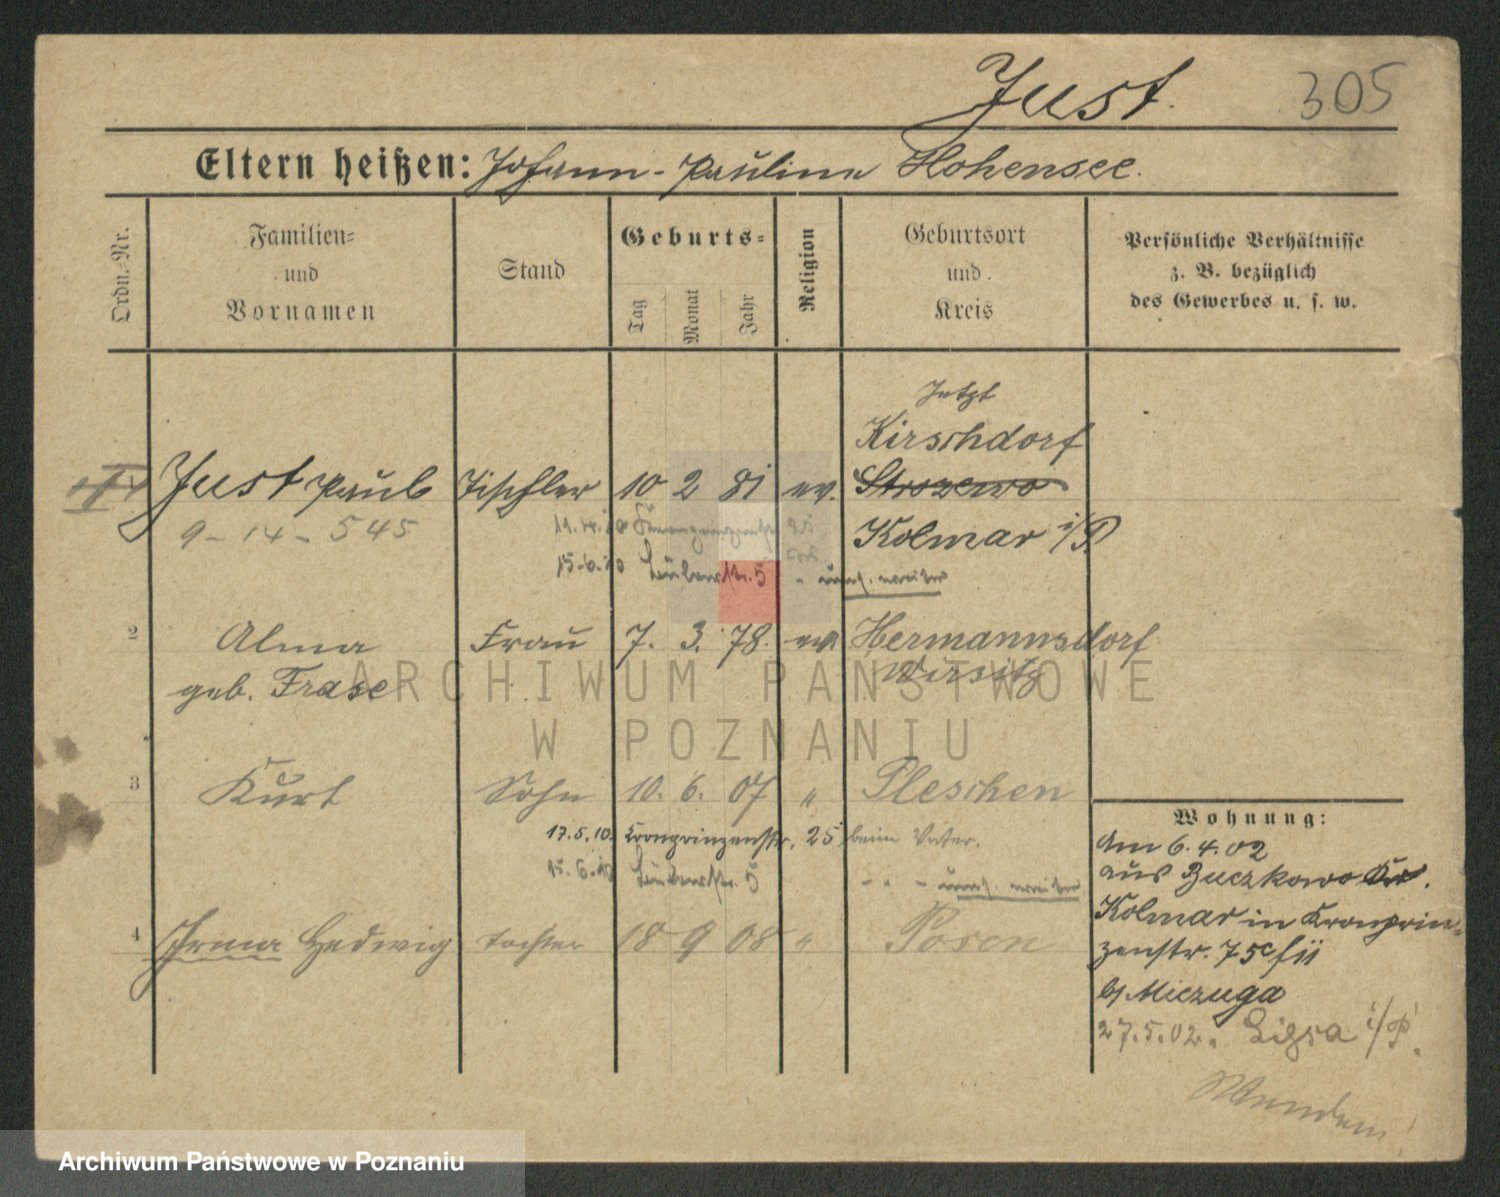 Just.
305
Eltern heißen: Johann - Pauline Hohensee.
Ordn.-Nr.
Familien-
und
Vornamen
Stand
Geburts-
Tag
Monat
Jahr
Religion
Geburtsort
und
Kreis
Persönliche Verhältnisse
z. B. bezüglich
des Gewerbes u. s. w.
Jetzt
Kirschdorf
Just Paul Tischler 10 2 81 ev. Strozewo
9 - 14 - 545
Kolmar i/P
11.4.10 Kronprinzenstr 25
15.6.10 5 " ums. weiter
2 Alma Frau 7. 3. 78. ev. Hermannsdorf
geb. Frase Wirsitz
3 Kurt Sohn 10. 6. 07 " Pleschen
17.5.10. Kronprinzenstr. 25 beim Vater.
15.6.10 5 - " - ums. weiter
4 Irma Hedwig Tochter 18 9 08 " Posen
Wohnung:
Am 6.4.02
aus Buczkowo Kr.
Kolmar in Kronprin-
zenstr. 75c
b/ Miczuga
27.5.02. i/P.
Wenden!
ARCHIWUM PAŃSTWOWE
W POZNANIU
Archiwum Państwowe w Poznaniu